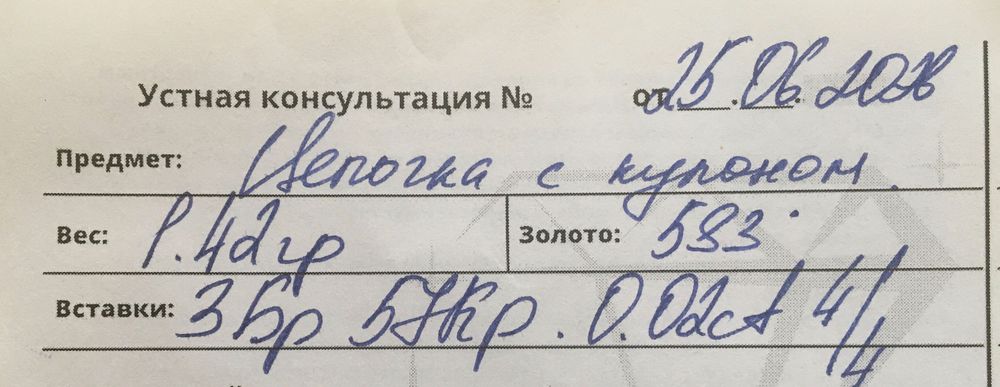 Устная консультация № от 25.06.2020
Предмет: Цепочка с кулоном.
Вес: 1.42гр Золото: 583°
Вставки: 3 Бр 57Кр. 0.02ct 4/4